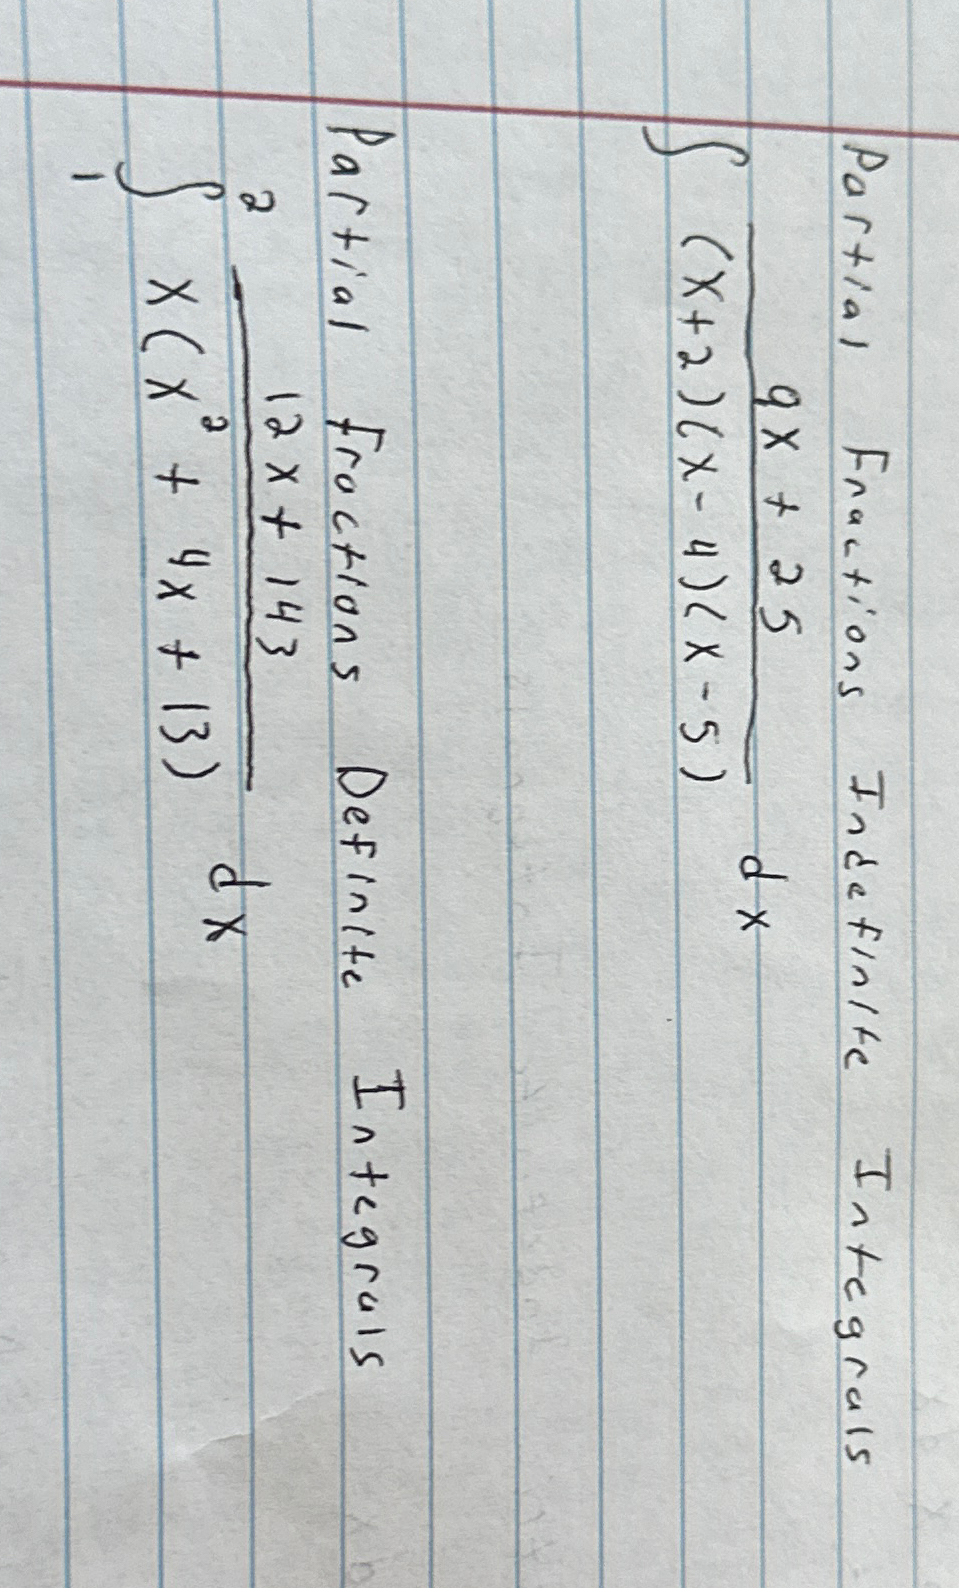 Partial Fractions Indefinite Integrals
∫ (9x + 25)/((x+2)(x-4)(x-5)) dx
Partial fractions Definite Integrals
∫₁² (12x + 143)/(x(x² + 4x + 13)) dx